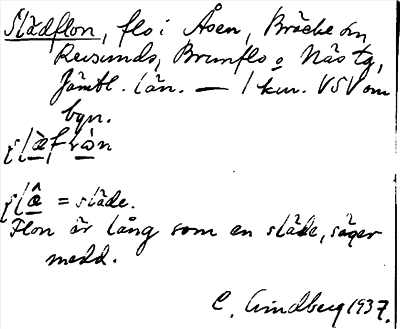 Slädflon, flo i Åsen, Bräcke sn,
Revsunds, Brunflo o Näs tg,
Jämtl. län. — 1 km. VSV om
byn.
ʂlæ̀flòn
ʂlæ̂ = släde.
Flon är lång som en släde, säger
medd.
C. Lindberg 1937.